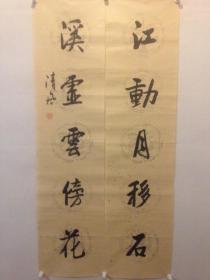 江動月移石
溪虛雲傍花